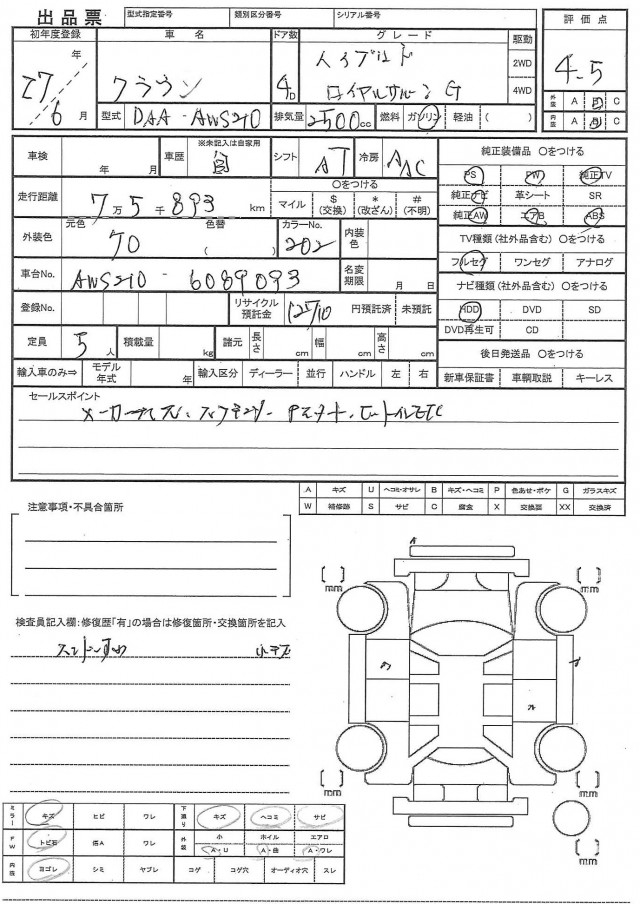 出品票 型式指定番号 類別区分番号 シリアル番号
初年度登録 車名 ドア数 グレード 駆動 評価点
27年 6月 クラウン 4D ハイブリッド 2WD 4.5
ロイヤルサルーン G 4WD
外装 A B C
内装 A B C
型式 DAA-AWS210 排気量 2500cc 燃料 ガソリン・軽油 ( )
車検 年 月 車歴 ※未記入は自家用 自 シフト AT 冷房 AAC
純正装備品 ○をつける
走行距離 7万5千893 km ○をつける
マイル $(交換) *(改ざん) #(不明)
PS PW 純正TV
純正ナビ 革シート SR
純正AW エアB ABS
外装色 元色 クロ 色替 カラーNo. 202 内装色
TV種類(社外品含む) ○をつける
フルセグ ワンセグ アナログ
車台No. AWS210-6089093 名変期限 月 日
ナビ種類(社外品含む) ○をつける
登録No. リサイクル預託金 円預託済 未預託
HDD DVD SD
DVD再生可 CD
定員 5人 積載量 kg 諸元 長さ cm 幅 cm 高さ cm
後日発送品 ○をつける
輸入車のみ⇒ モデル年式 年 輸入区分 ディーラー 並行 ハンドル 左 右
新車保証書 車輌取説 キーレス
セールスポイント
A キズ U ヘコミ・オサレ B キズ・ヘコミ P 色あせ・ボケ G ガラスキズ
W 補修跡 S サビ C 腐金 X 交換要 XX 交換済
注意事項・不具合箇所
A
[ ] mm [ ] mm
検査員記入欄:修復歴「有」の場合は修復箇所・交換箇所を記入
[ ] mm [ ] mm
[ ] mm
ミラー キズ ヒビ ワレ 下廻り キズ ヘコミ サビ
FW トビ石 擦A ワレ 外装 小 A・U ホイル A・曲 エアロ A・ワレ
内装 ヨゴレ シミ ヤブレ コゲ コゲ穴 オーディオ穴 スレ